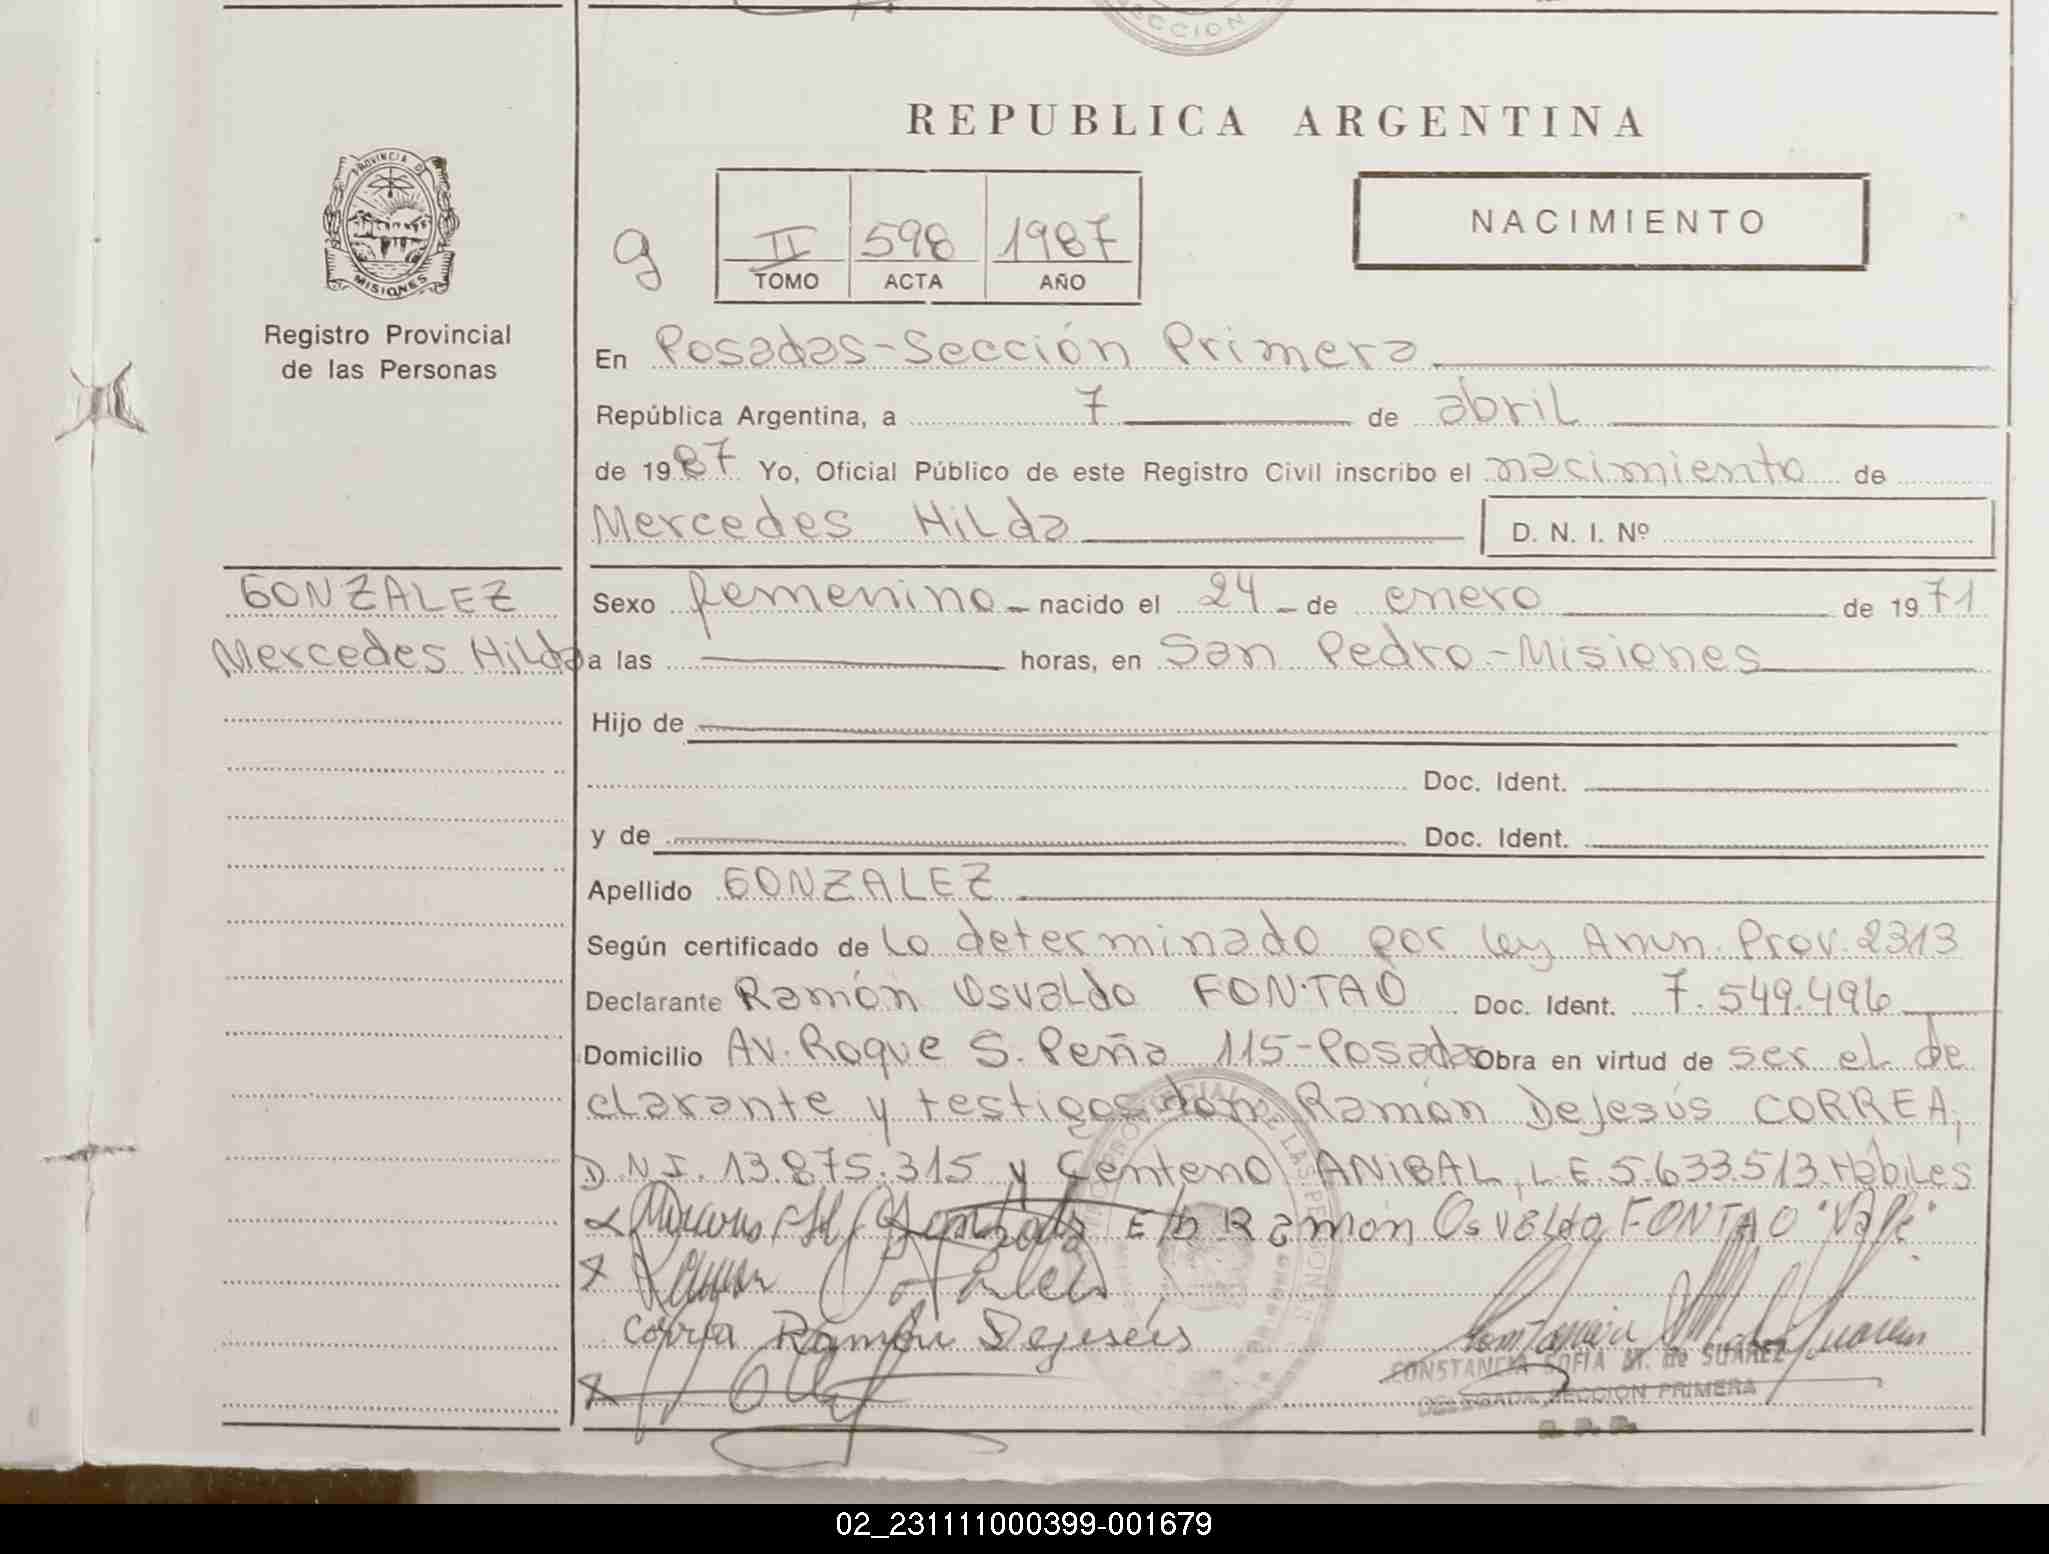 SECCION
REPUBLICA ARGENTINA
PROVINCIA DE
MISIONES
Registro Provincial
de las Personas
g
II 598 1987
TOMO ACTA AÑO
NACIMIENTO
En Posadas-Sección Primera
República Argentina, a 7 de abril
de 1987 Yo, Oficial Público de este Registro Civil inscribo el nacimiento de
Mercedes Hilda D. N. I. Nº
GONZALEZ
Mercedes Hilda
Sexo femenino nacido el 24 de enero de 1971
a las horas, en San Pedro-Misiones
Hijo de
Doc. Ident.
y de Doc. Ident.
Apellido GONZALEZ
Según certificado de Lo determinado por Ley Prov. 2313
Declarante Ramón Osvaldo FONTAO Doc. Ident. 7.549.496
Domicilio Av. Roque S. Peña 115-Posadas Obra en virtud de ser el de
clarante y testigos don Ramón DeJesús CORREA,
D.N.I. 13.875.315 y Centeno ANIBAL, L.E. 5.633.513 Hábiles
E/b Ramón Osvaldo FONTAO "Vale"
Correa Ramón Dejesús
CONSTANCIA SOFIA M. de SUAREZ
DELEGADA SECCION PRIMERA
R. P. P.
02_231111000399-001679